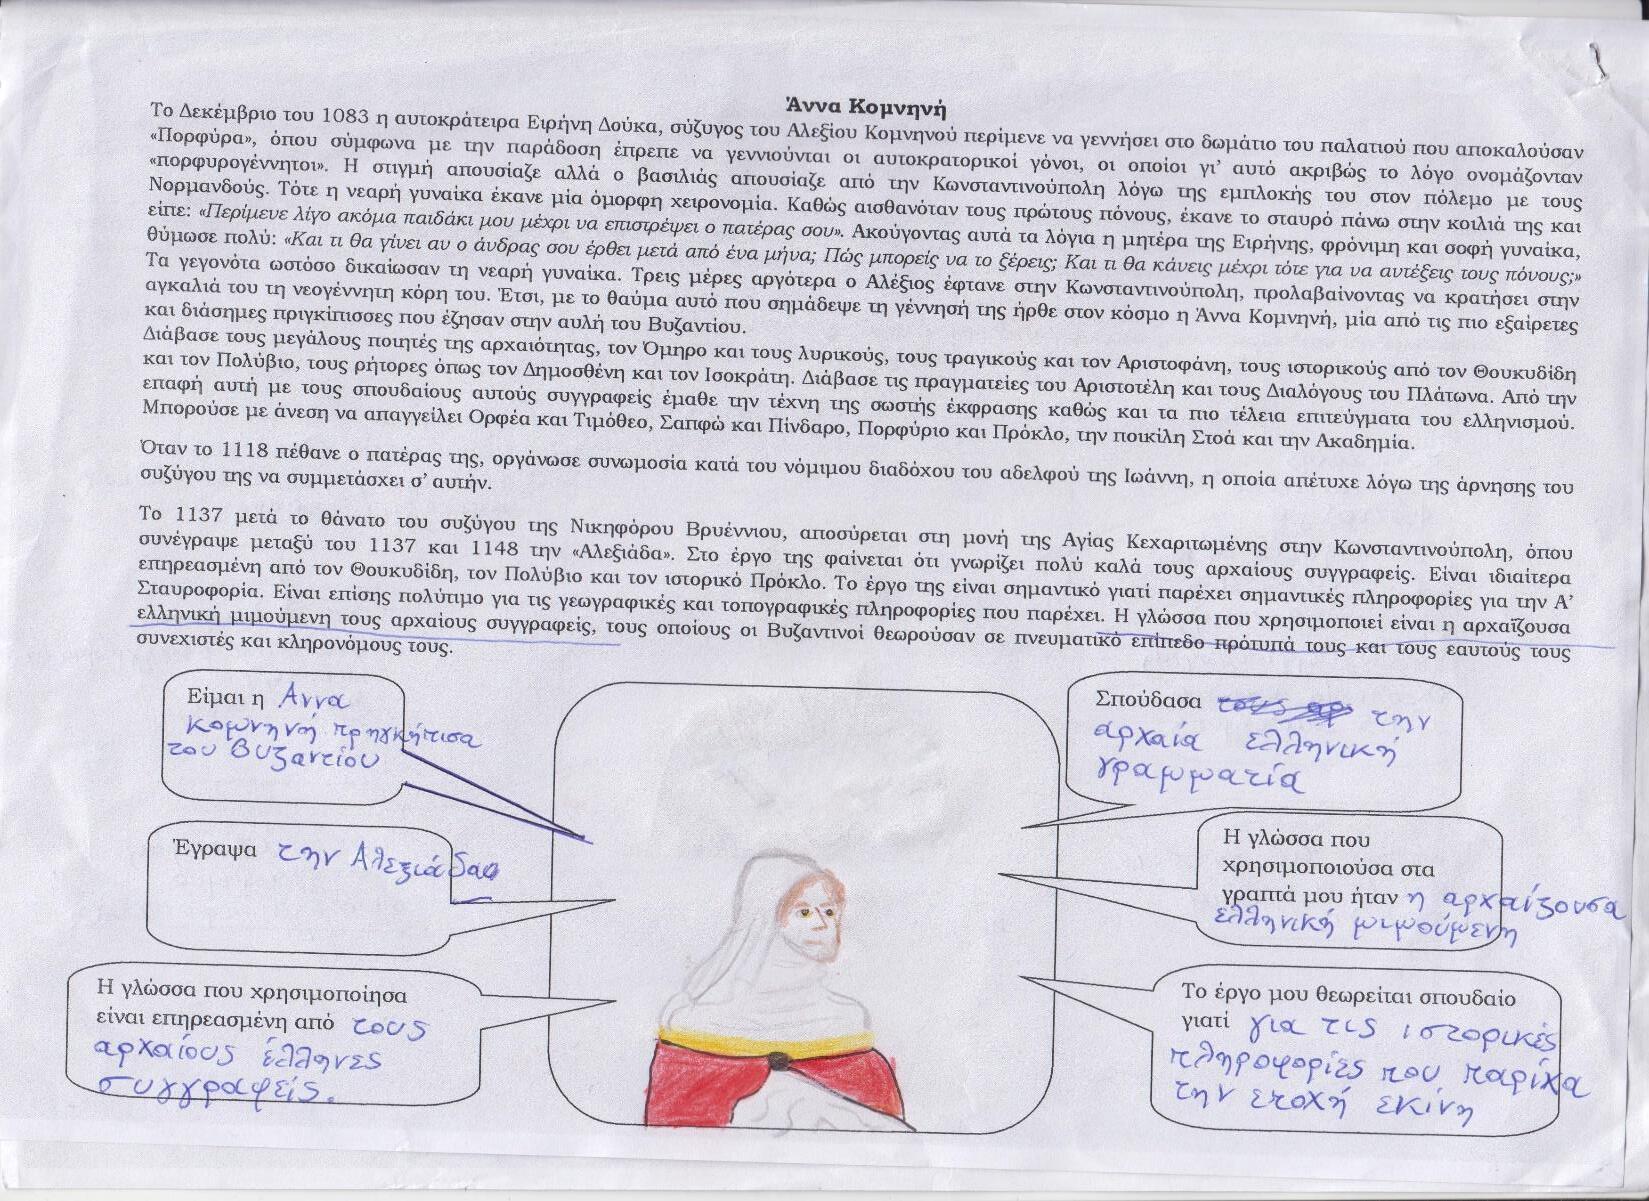 Άννα Κομνηνή
Το Δεκέμβριο του 1083 η αυτοκράτειρα Ειρήνη Δούκα, σύζυγος του Αλεξίου Κομνηνού περίμενε να γεννήσει στο δωμάτιο του παλατιού που αποκαλούσαν
«Πορφύρα», όπου σύμφωνα με την παράδοση έπρεπε να γεννιούνται οι αυτοκρατορικοί γόνοι, οι οποίοι γι’ αυτό ακριβώς το λόγο ονομάζονταν
«πορφυρογέννητοι». Η στιγμή απουσίαζε αλλά ο βασιλιάς απουσίαζε από την Κωνσταντινούπολη λόγω της εμπλοκής του στον πόλεμο με τους
Νορμανδούς. Τότε η νεαρή γυναίκα έκανε μία όμορφη χειρονομία. Καθώς αισθανόταν τους πρώτους πόνους, έκανε το σταυρό πάνω στην κοιλιά της και
είπε: «Περίμενε λίγο ακόμα παιδάκι μου μέχρι να επιστρέψει ο πατέρας σου». Ακούγοντας αυτά τα λόγια η μητέρα της Ειρήνης, φρόνιμη και σοφή γυναίκα,
θύμωσε πολύ: «Και τι θα γίνει αν ο άνδρας σου έρθει μετά από ένα μήνα; Πώς μπορείς να το ξέρεις; Και τι θα κάνεις μέχρι τότε για να αντέξεις τους πόνους;»
Τα γεγονότα ωστόσο δικαίωσαν τη νεαρή γυναίκα. Τρεις μέρες αργότερα ο Αλέξιος έφτανε στην Κωνσταντινούπολη, προλαβαίνοντας να κρατήσει στην
αγκαλιά του τη νεογέννητη κόρη του. Έτσι, με το θαύμα αυτό που σημάδεψε τη γέννησή της ήρθε στον κόσμο η Άννα Κομνηνή, μία από τις πιο εξαίρετες
και διάσημες πριγκίπισσες που έζησαν στην αυλή του Βυζαντίου.
Διάβασε τους μεγάλους ποιητές της αρχαιότητας, τον Όμηρο και τους λυρικούς, τους τραγικούς και τον Αριστοφάνη, τους ιστορικούς από τον Θουκυδίδη
και τον Πολύβιο, τους ρήτορες όπως τον Δημοσθένη και τον Ισοκράτη. Διάβασε τις πραγματείες του Αριστοτέλη και τους Διαλόγους του Πλάτωνα. Από την
επαφή αυτή με τους σπουδαίους αυτούς συγγραφείς έμαθε την τέχνη της σωστής έκφρασης καθώς και τα πιο τέλεια επιτεύγματα του ελληνισμού.
Μπορούσε με άνεση να απαγγείλει Ορφέα και Τιμόθεο, Σαπφώ και Πίνδαρο, Πορφύριο και Πρόκλο, την ποικίλη Στοά και την Ακαδημία.
Όταν το 1118 πέθανε ο πατέρας της, οργάνωσε συνωμοσία κατά του νόμιμου διαδόχου του αδελφού της Ιωάννη, η οποία απέτυχε λόγω της άρνησης του
συζύγου της να συμμετάσχει σ’ αυτήν.
Το 1137 μετά το θάνατο του συζύγου της Νικηφόρου Βρυέννιου, αποσύρεται στη μονή της Αγίας Κεχαριτωμένης στην Κωνσταντινούπολη, όπου
συνέγραψε μεταξύ του 1137 και 1148 την «Αλεξιάδα». Στο έργο της φαίνεται ότι γνωρίζει πολύ καλά τους αρχαίους συγγραφείς. Είναι ιδιαίτερα
επηρεασμένη από τον Θουκυδίδη, τον Πολύβιο και τον ιστορικό Πρόκλο. Το έργο της είναι σημαντικό γιατί παρέχει σημαντικές πληροφορίες για την Α’
Σταυροφορία. Είναι επίσης πολύτιμο για τις γεωγραφικές και τοπογραφικές πληροφορίες που παρέχει. Η γλώσσα που χρησιμοποιεί είναι η αρχαΐζουσα
ελληνική μιμούμενη τους αρχαίους συγγραφείς, τους οποίους οι Βυζαντινοί θεωρούσαν σε πνευματικό επίπεδο πρότυπά τους και τους εαυτούς τους
συνεχιστές και κληρονόμους τους.
Είμαι η Αννα
κομνηνή πρηγκήπισα
του Βυζαντίου
Σπούδασα την
αρχαία ελληνική
γραμματία
Έγραψα την Αλεξιάδα
Η γλώσσα που
χρησιμοποιούσα στα
γραπτά μου ήταν η αρχαίζουσα
ελληνική μιμούμενη
Η γλώσσα που χρησιμοποίησα
είναι επηρεασμένη από τους
αρχαίους έλληνες
συγγραφείς.
Το έργο μου θεωρείται σπουδαίο
γιατί για τις ιστορικές
πληροφορίες που παρίχα
την εποχή εκίνη